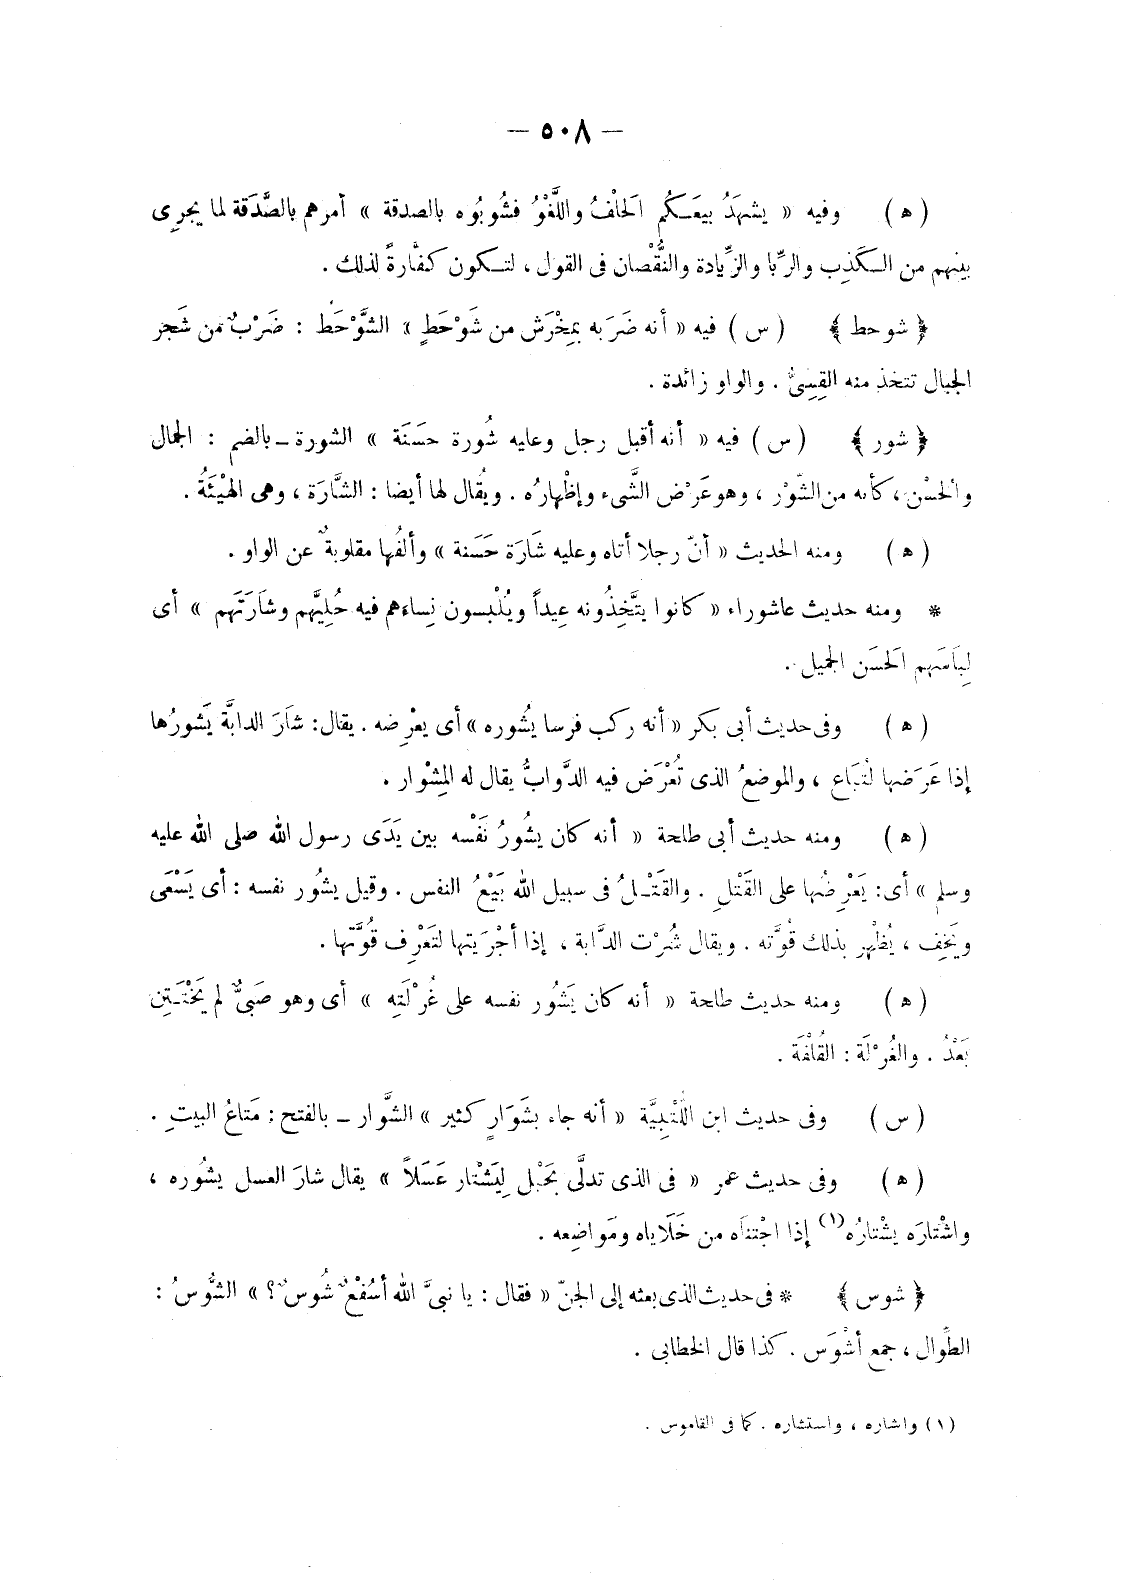 — ٥٠٨ —
( ه ) وفيه « يشهَدُ بيعَكُم الحَلْفُ واللَّغْوُ فشُوبُوه بالصدقة » أمرهم بالصَّدَقة لما يجرِى
بينهم من الكَذِب والرِّبا والزِّيادة والنُّقْصان فى القول ، لتكون كفَّارةً لذلك .
﴿ شوحط ﴾ ( س ) فيه « أنه ضَرَبه بمِخْرَش من شَوْحَطٍ » الشَّوْحَط : ضَرْبٌ من شَجر
الجبال تتخذ منه القِسِىُّ . والواو زائدة .
﴿ شور ﴾ ( س ) فيه « أنه أقبل رجل وعليه شُورة حَسَنَة » الشورة ــ بالضم : الجمال
والحسْن ، كأنه من الشَّوْر ، وهو عَرْض الشَّىء وإظْهارُه . ويُقال لها أيضا : الشَّارَة ، وهى الهَيْئَةُ .
( ه ) ومنه الحديث « أنّ رجلا أتاه وعليه شَارَة حَسَنة » وألفُها مقلوبةٌ عن الواو .
* ومنه حديث عاشوراء « كانوا يتَّخِذُونه عِيداً ويُلْبسون نِساءهم فيه حُلِيَّهم وشَارَتَهم » أى
لِبَاسَهم الحَسَن الجميل .
( ه ) وفى حديث أبى بكر « أنه ركب فرسا يشُوره » أى يعْرِضه . يقال : شَارَ الدابَّة يَشورُها
إذا عَرَضها لتُبَاع ، والموضعُ الذى تُعْرَض فيه الدَّوابُّ يقال له المِشْوار .
( ه ) ومنه حديث أبى طلحة « أنه كان يشُورُ نَفْسه بين يَدَى رسول الله صلى الله عليه
وسلم » أى : يَعْرِضُها على القَتْلِ . والقَتْلُ فى سبيل الله بَيْعُ النفس . وقيل يشُور نفسه : أى يَسْعَى
ويَخِف ، يُظْهر بذلك قُوَّته . ويقال شُرْت الدَّابة ، إذا أجْرَيتها لتَعْرِف قُوَّتها .
( ه ) ومنه حديث طلحة « أنه كان يَشُور نفسه على غُرْلَتِه » أى وهو صَبىٌّ لم يَخْتَتِن
بَعْدُ . والغُرْلَة : القُلْفَة .
( س ) وفى حديث ابن اللُّتْبِيَّة « أنه جاء بشَوَارٍ كثير » الشَّوار ــ بالفتح : مَتاعُ البيتِ .
( ه ) وفى حديث عمر « فى الذى تدلَّى بحَبْل لِيَشْتار عَسَلاً » يقال شارَ العسل يشُوره ،
واشْتارَه يشْتارُه (١) إذا اجْتناَه من خَلَاياه ومَواضِعه .
﴿ شوس ﴾ * فى حديث الذى بعثه إلى الجنّ « فقال : يا نبىَّ الله أسُفْعٌ شُوسٌ ؟ » الشُّوسُ :
الطِّوال ، جمع أشْوَس . كذا قال الخطابى .
(١) واشاره ، واستشاره . كما فى القاموس .